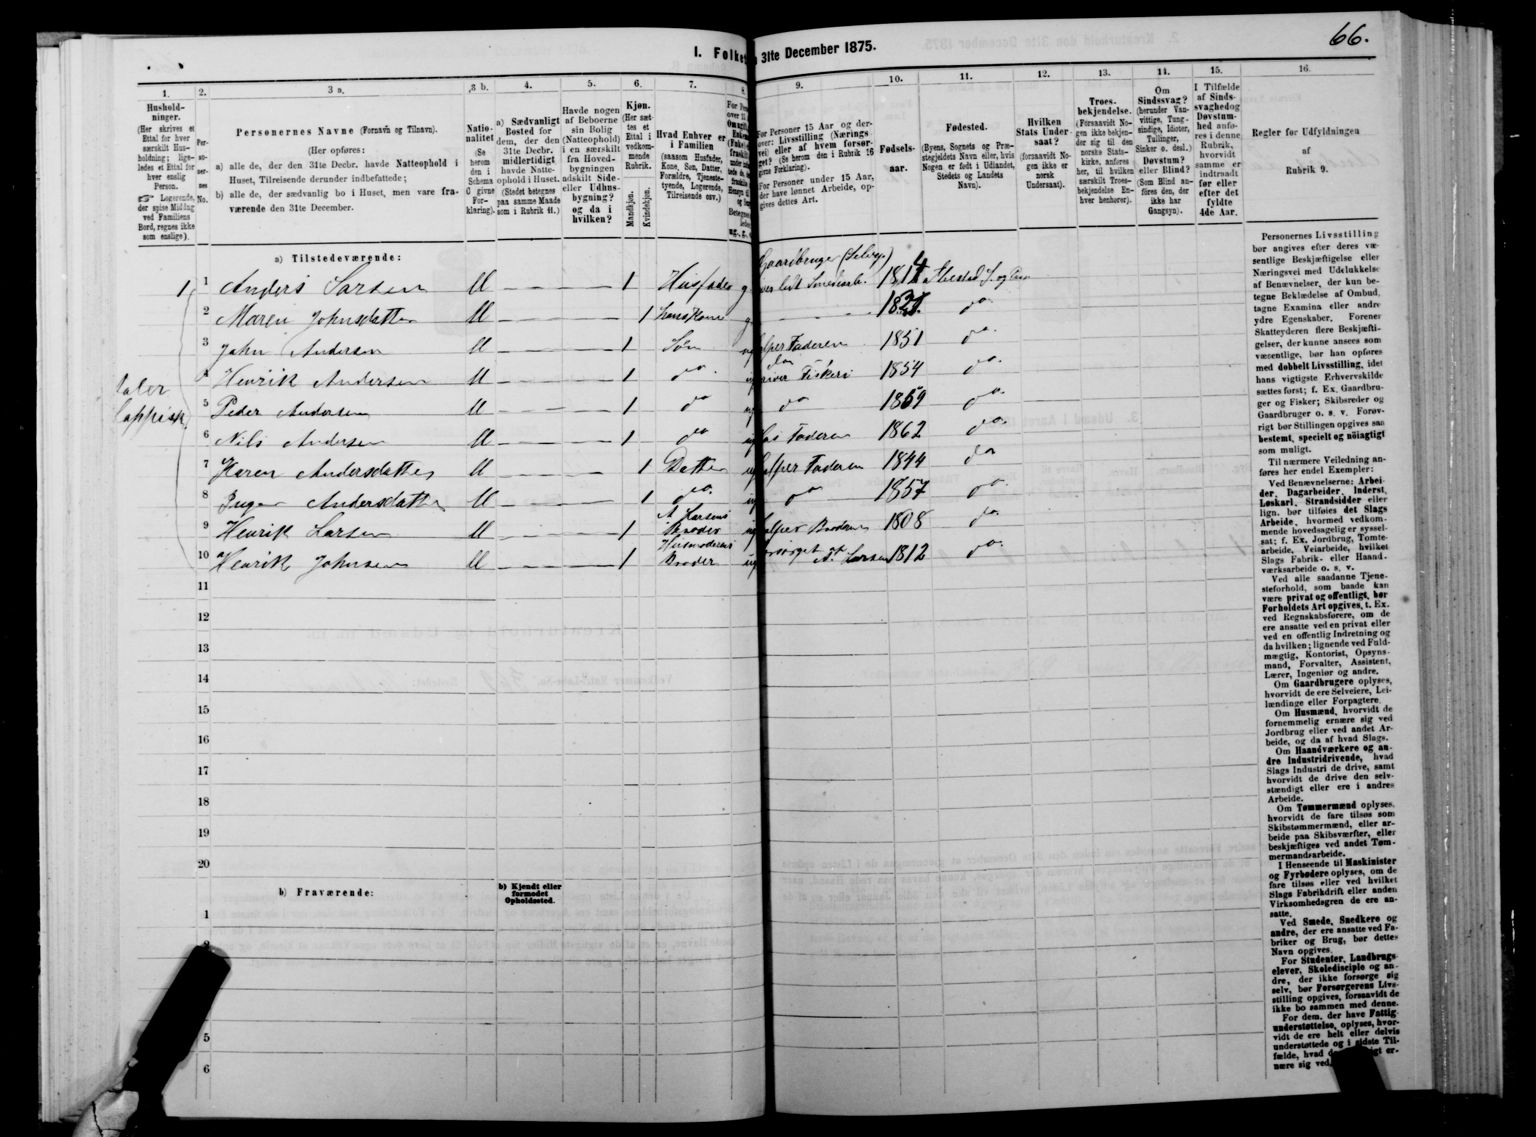 66.
I. Folket
31te December 1875.
1. 2. 3 a. 3 b. 4. 5. 6. 7. 8. 9. 10. 11. 12. 13. 14. 15. 16.
Hushold-
ninger.
(Her skrives et
Ettal for hver
særskilt Hus-
holdning; lige-
ledes et Ettal for
hver enslig
Person.
☞ Logerende,
der spise Middag
ved Familiens
Bord, regnes ikke
som enslige).
Per-
so-
ner-
nes
No.
Personernes Navne (Fornavn og Tilnavn).
(Her opføres:
a) alle de, der den 31te Decbr. havde Natteophold i
Huset, Tilreisende derunder indbefattede;
b) alle de, der sædvanlig bo i Huset, men vare fra-
værende den 31te December.
Natio-
nalitet
(Se
herom
den i
Schema
O givne
For-
klaring).
a) Sædvanligt
Bosted for
dem, der den
31te Decbr.
midlertidigt
havde Natte-
ophold i Huset.
(Stedet betegnes
paa samme Maade
som i Rubrik 11.)
Havde nogen
af Beboerne
sin Bolig
(Natteophold)
i en særskilt
fra Hoved-
bygningen
adskilt Side-
eller Udhus-
bygning?
og da i
hvilken?
Kjøn.
(Her sæt-
tes et
Ettal i
vedkom-
mende
Rubrik.
Mandkjøn.
Kvindekjøn.
Hvad Enhver er
i Familien
(saasom Husfader,
Kone, Søn, Datter,
Forældre, Tjeneste-
tyende, Logerende,
Tilreisende osv.)
For Personer 15 Aar og der-
over: Livsstilling (Nærings-
vei) eller af hvem forsør-
get? (Se herom den i Rubrik 16
givne Forklaring).
For Personer under 15 Aar,
der have lønnet Arbeide, op-
gives dettes Art.
Fødsels-
aar.
Fødested.
(Byens, Sognets og Præ-
stegjeldets Navn eller, hvis
Nogen er født i Udlandet,
Stedets og Landets
Navn).
Hvilken
Stats Under-
saat?
(forsaavidt No-
gen ikke er
norsk
Undersaat).
Troes-
bekjendelse.
(Forsaavidt No-
gen ikke bekjen-
der sig til den
norske Stats-
kirke, anføres
her, til hvilken
særskilt Troes-
bekjendelse En-
hver henhører).
Om
Sindssvag?
(herunder Van-
vittige, Tung-
sindige, Idioter,
Tullinger,
Sinker o. desl.)
Døvstum?
eller Blind?
(Som Blind an-
føres den, der
ikke har
Gangsyn).
I Tilfælde
af Sinds-
svaghed og
Døvstum-
hed anfø-
res i denne
Rubrik,
hvorvidt
samme er
indtraadt
før eller
efter det
fyldte
4de Aar.
Regler for Udfyldningen
af
Rubrik 9.
a) Tilstedeværende:
1 1 Anders Larsen M — — — 1 Husfader g 1814
2 Maren Johnsdatter M — — — 1 g — — — do
3 John Andersen M — — — 1 Søn 1851 do.
4 Henrik Andersen M — — — 1 do. Fiskeri 1854 do.
5 Peder Andersen M — — — 1 do do 1859 do.
6 Nils Andersen M — — — 1 do Faderen 1862 do.
7 Karen Andersdatter M — — — 1 Datter Faderen 1844 do
8 Andersdatter M — — — 1 do. do 1857 do.
9 Henrik Larsen M — — — 1 A Larsens Broder 1808 do
10 Henrik Johnsen M — — — 1 Husmoderens Broder A. Larsen 1812 do.
11
12
13
14
15
16
17
18
19
20
b) Fraværende:
b) Kjendt eller
formodet
Opholdssted.
1
5
6
Personernes Livsstilling
bør angives efter deres væ-
sentlige Beskjæftigelse eller
Næringsvei med Udelukkelse
af Benævnelser, der kun be-
tegne Beklædelse af Ombud,
tagne Examina eller andre
ydre Egenskaber. Forener
Skatteyderen flere Beskjæfti-
gelser, der kunne ansees som
væcentlige, bør han opføres
med dobbelt Livsstilling, idet
hans vigtigste Erhvervskilde
sættes først; f. Ex. Gaardbru-
ger og Fisker; Skibsreder og
Gaardbruger o. s. v. Forøv-
rigt bør Stillingen opgives saa
bestemt, specielt og nøiagtigt
som muligt.
Til nærmere Veiledning an-
føres her endel Exempler:
Ved Benævnelserne: Arbei-
der, Dagarbeider, Inderst,
Løskarl, Strandsidder eller
lign. bør tilføies det Slags
Arbeide, hvormed vedkom-
mende hovedsagelig er syssel-
sat; f. Ex. Jordbrug, Tomte-
arbeide, Veiarbeide, hvilket
Slags Fabrik- eller Haand-
værksarbeide o. s. v.
Ved alle saadanne Tjene-
steforhold, som baade kan
være privat og offentligt, bør
Forholdets Art opgives, t. Ex.
ved Regnskabsførere, om de
ere ansatte ved en privat eller
ved en offentlig Indretning og
da hvilken; lignende ved Fuld-
mægtig, Kontorist, Opsyns-
mand, Forvalter, Assistent,
Lærer, Ingeniør og andre.
Om Gaardbrugere oplyses,
hvorvidt de ere Selveiere, Lei-
lændinge eller Forpagtere.
Om Husmænd, hvorvidt de
fornemmelig ernære sig ved
Jordbrug eller ved andet Ar-
beide, og da af hvad Slags.
Om Haandværkere og an-
dre Industridrivende, hvad
Slags Industri de drive, samt
hvorvidt de drive den selv-
stændigt eller ere i andres
Arbeide.
Om Tømmermænd oplyses,
hvorvidt de fare tilsøs som
Skibstømmermænd, eller ar-
beide paa Skibsværfter, eller
beskjæftiges ved andet Tøm-
mermandsarbeide.
I Henseende til Maskinister
og Fyrbødere oplyses, om de
fare tilsøs eller ved hvilket
Slags Fabrikdrift eller anden
Virksomhedsgren de ere an-
satte.
Ved Smede, Snedkere og
andre, der ere ansatte ved Fa-
briker og Brug, bør dettes
Navn opgives.
For Studenter, Landbrugs-
elever, Skoledisciple og an-
dre, der ikke forsørge sig
selv, bør Forsørgerens Livs-
stilling opgives, forsaavidt de
ikke bo sammen med denne.
For dem, der have Fattig-
understøttelse, oplyses, hvor-
vidt de ere helt eller delvis
understøttede og i sidste Til-
fælde, hvad
nære sig ved.